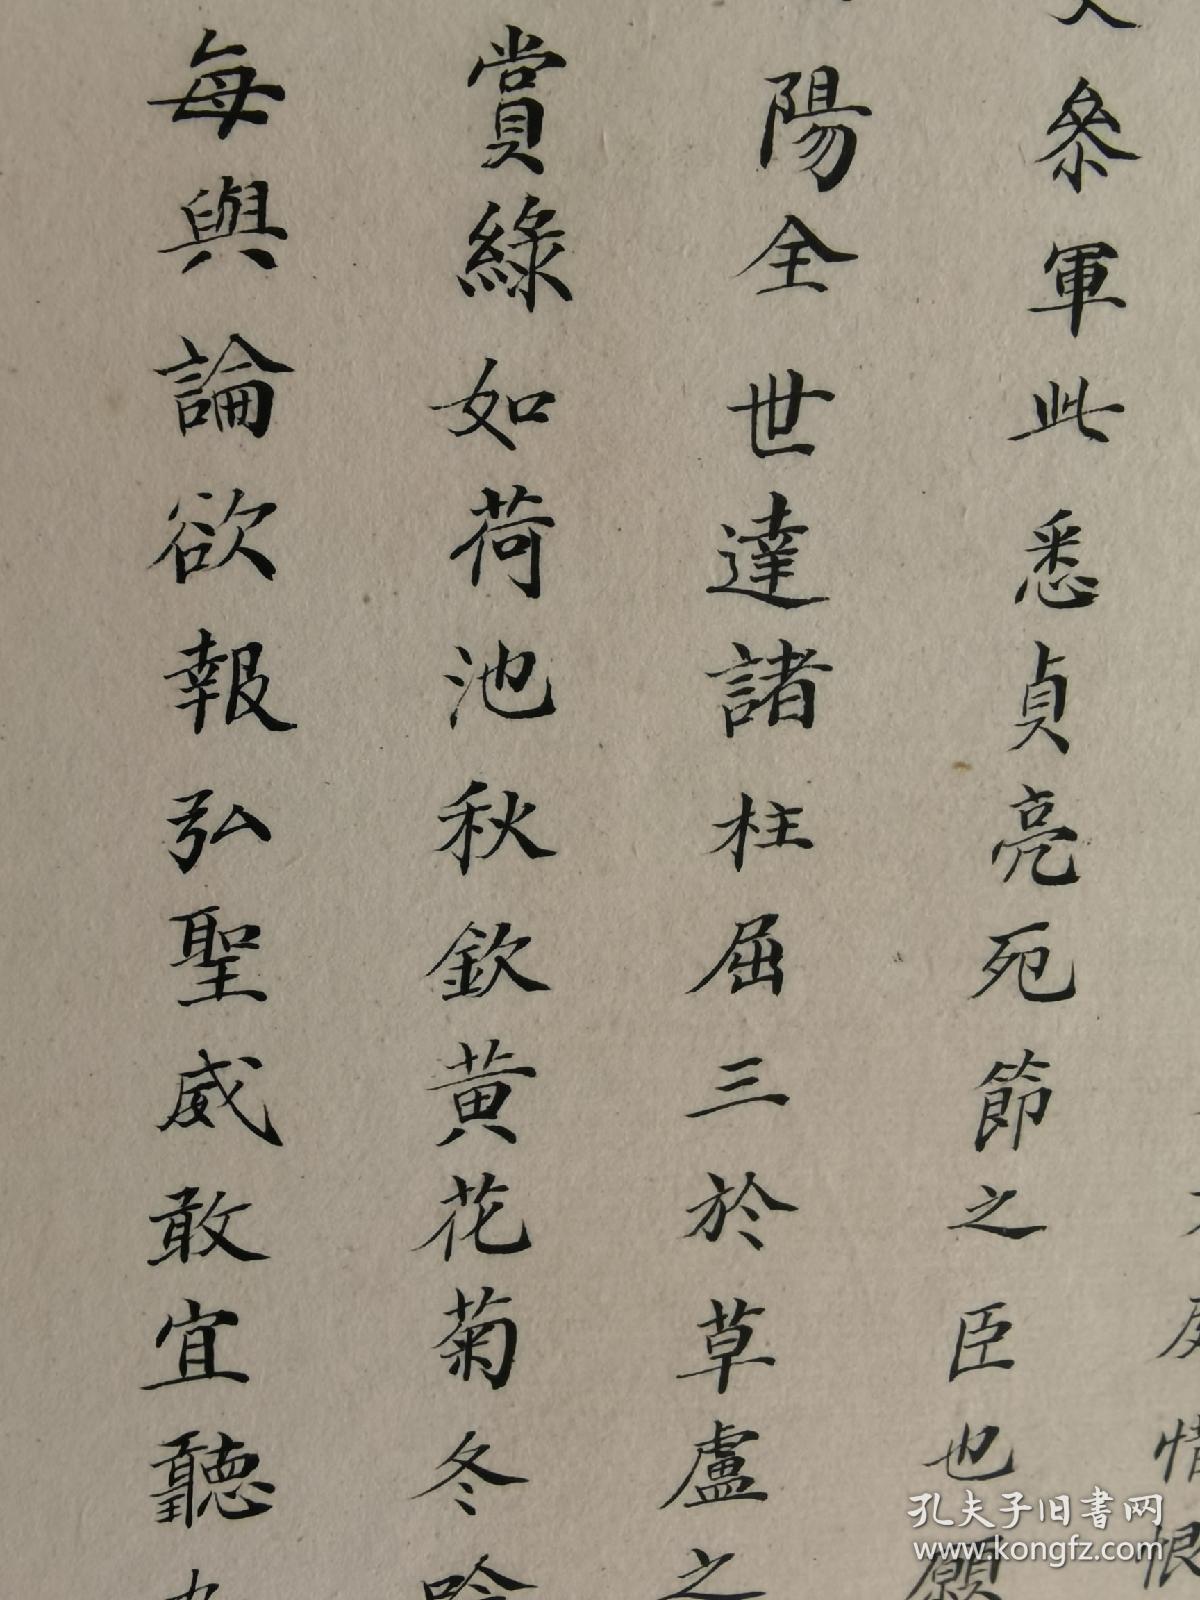 情恨
叅軍此悉貞亮死節之臣也願
陽全世達諸柱屈三於草盧之
賞綠如荷池秋欽黄花菊冬吟
每與論欲報弘聖威敢宜聽
孔夫子旧書网
www.kongfz.com